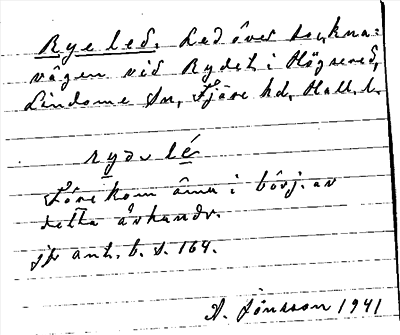 Rye led. Led över sockna-
vägen vid Rydet i Högsered,
Lindome sn, Fjäre hd, Hall. l.
rydu lé
Förekom ännu i börj. av
detta århundr.
jfr ant. b. s. 164.
A. Jönsson 1941